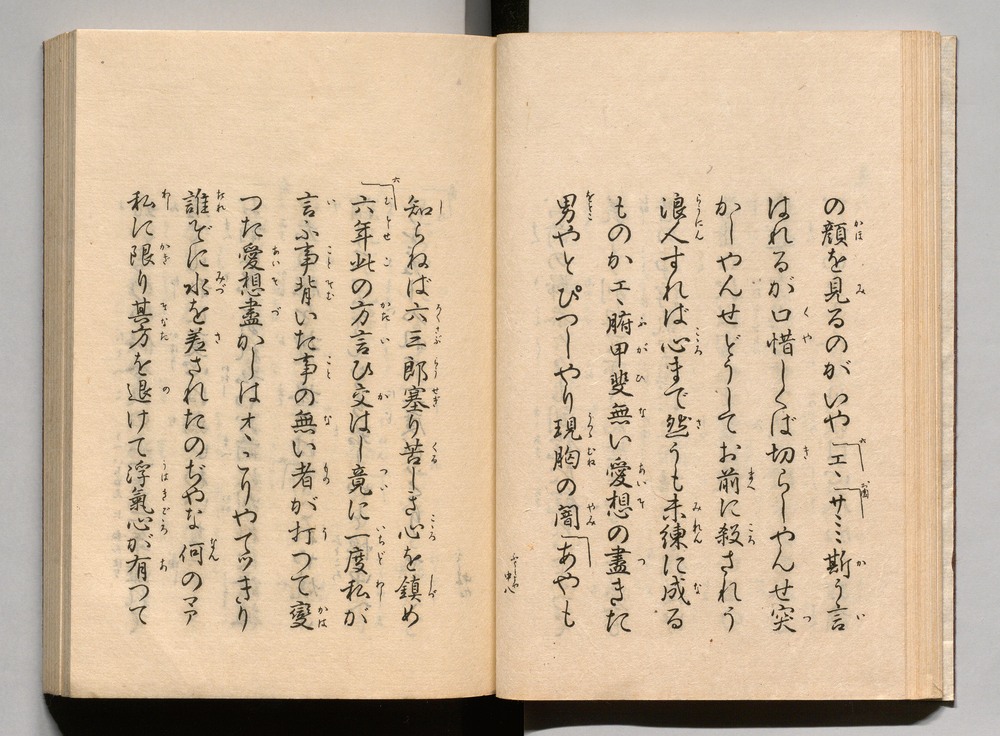 の顔を見るのがいや「エヽ「サミミ斯う言
はれるが口惜しくば切らしやんせ突
かしやんせどうしてお前に殺されう
浪人すれば心まで然うも未練に成る
ものかエヽ腑甲斐無い愛想の盡きた
男やとぴつしやり現胸の闇「あやも
知らねば六三郎塞り苦しき心を鎮め
「六年此の方言ひ交はし竟に一度私が
言ふ事背いた事の無い者が打つて變
つた愛想盡かしはオヽこりやてツきり
誰ぞに水を差されたのぢやな何のマア
私に限り其方を退けて浮氣心が有つて